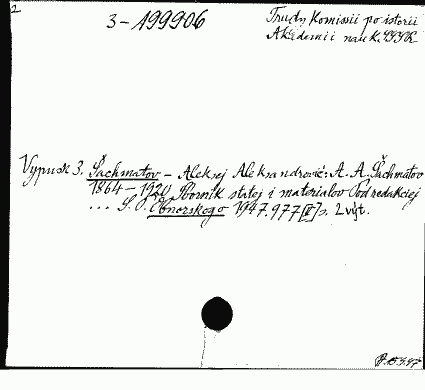 2
3-199906
Trudy Komissii po istorii
Akademii nauk SSSR
Vypusk 3. Šachmatov - Aleksej Aleksandrovič: A. A. Šachmatov
1864-1920 Sbornik statej i materialov Pod redakciej
... S. P. Obnorskogo 1947. 477 [II] s. 2 výt.